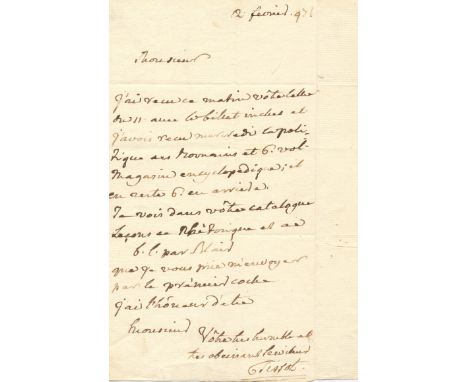 2 fevrier. 97
Monsieur
j'ai recu ce matin vôtre lettre
du 11 avec le billet inclus et
j'avois recu mercredi la poli-
tique des Romains et 6. vol.
Magasin encyclopedique; et
en reste 6. en arriere.
Je vois dans vôtre catalogue
Leçons de Rhétorique et de
b. l. par Blair
que je vous prie m'envoyer
par le prémier coche
j'ai l'hôneur d'etre
Monsieur
Vôtre tres humble et
tres obeissant serviteur
Tissot.